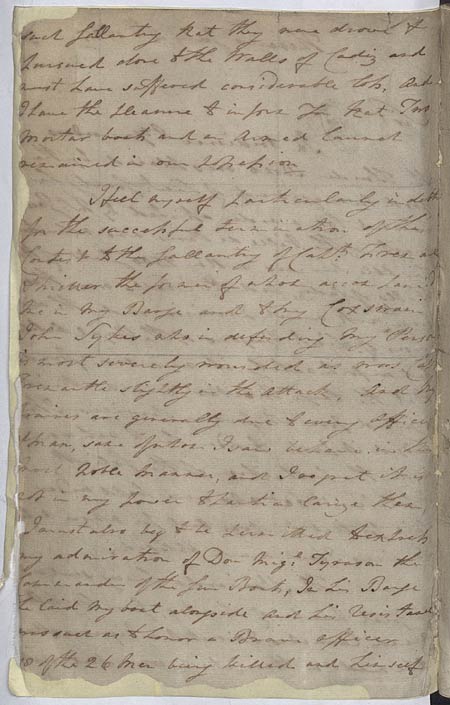 such Gallantry that they were drove &
pursued close to the Walls of Cadiz and
must have suffered considerable loss, and
I have the pleasure to inform you that Two
mortar boats and an Armed Launch
remained in our possession
I feel myself particularly indebt
for the successful termination of this
Contest to the Gallantry of Captn. Fremantle
& Miller the former of whom accompanied
me in my Barge and to my Coxswain
John Sykes who in defending my Person
is most severely wounded as was Captn
Fremantle slightly in the attack, and my
praises are generally due to every Officer
& Man, some of whom I saw behave in the
most Noble manner, and I regret it is
not in my power to particularize them
I must also beg to be permitted to express
my admiration of Don Migl. Tyrason the
Commander of the Gun Boats, In his Barge
he laid my boat alongside and his resistance
was such as to honor a Brave officer
18 of the 26 Men being killed and himself